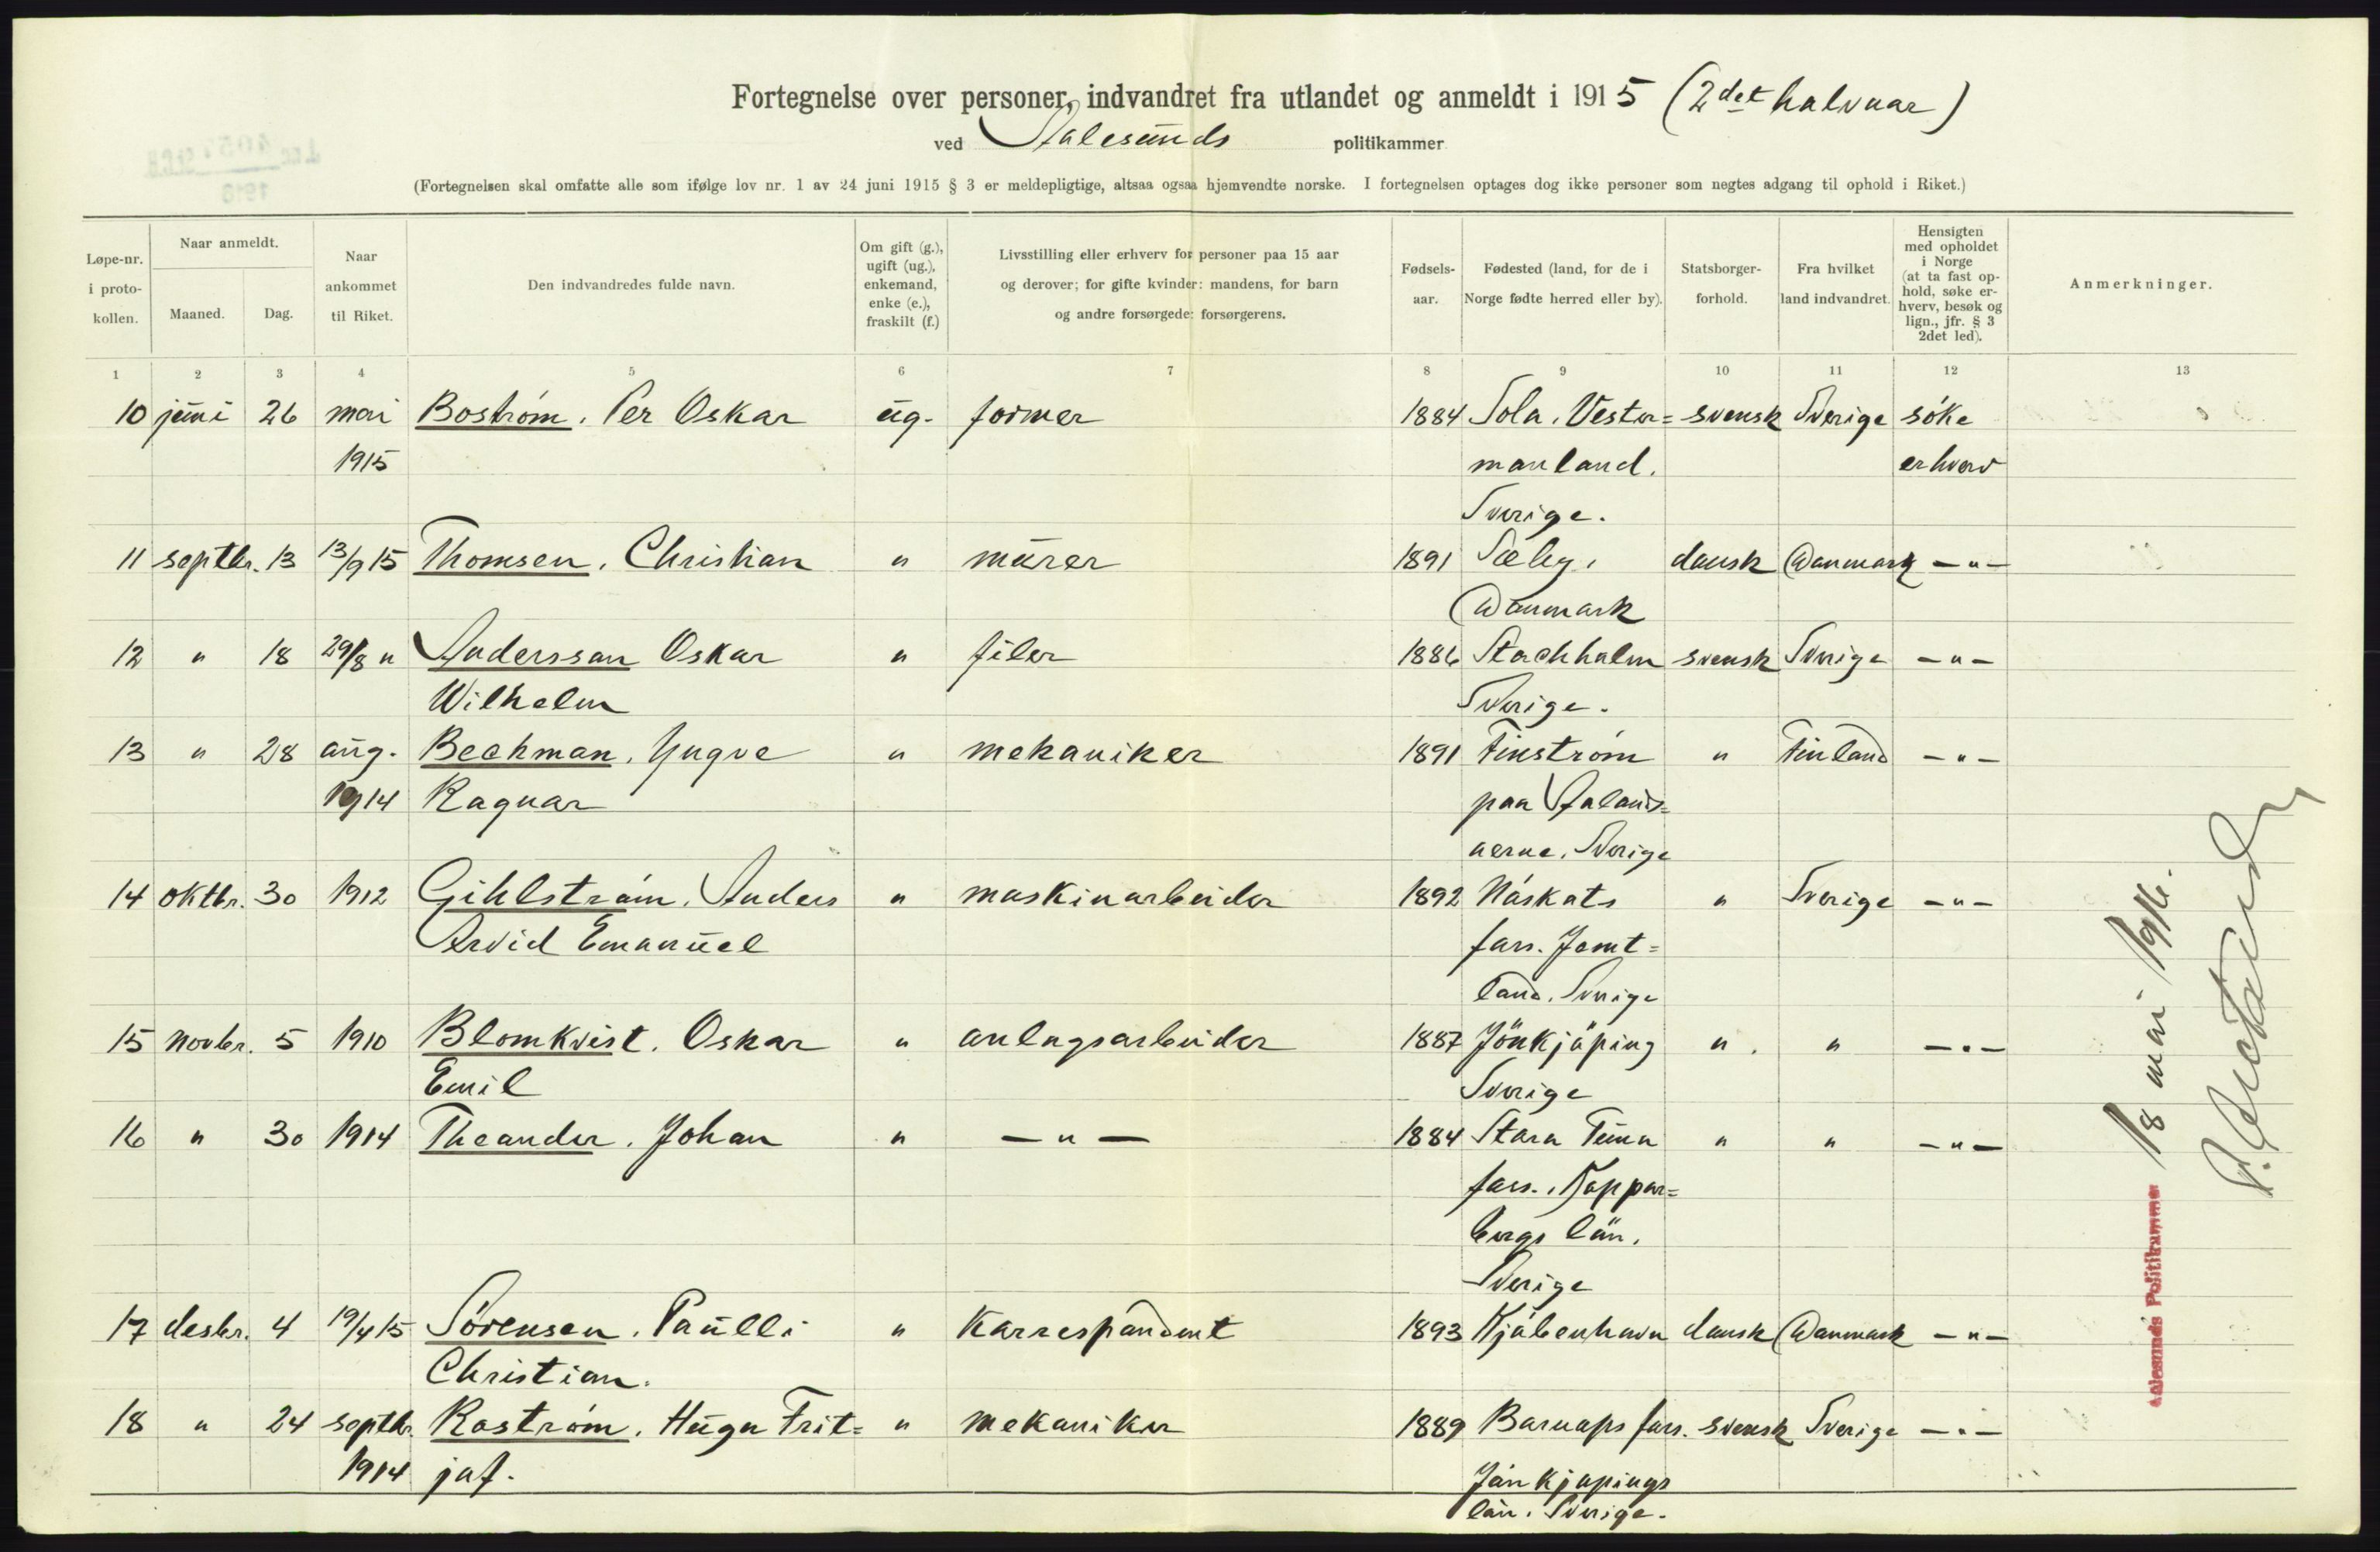 Fortegnelse over personer, indvandret fra utlandet og anmeldt i 1915 (2det halvaar)
ved Aalesunds politikammer
(Fortegnelsen skal omfatte alle som ifølge lov nr. 1 av 24 juni 1915 § 3 er meldepligtige, altsaa ogsaa hjemvendte norske. I fortegnelsen optages dog ikke personer som negtes adgang til ophold i Riket.)
Løpe-nr. i proto-kollen. Naar anmeldt. Maaned. Dag. Naar ankommet til Riket. Den indvandredes fulde navn. Om gift (g.), ugift (ug.), enkemand, enke (e.), fraskilt (f.) Livsstilling eller erhverv for personer paa 15 aar og derover; for gifte kvinder: mandens, for barn og andre forsørgede: forsørgerens. Fødsels-aar. Fødested (land, for de i Norge fødte herred eller by). Statsborger-forhold. Fra hvilket land indvandret. Hensigten med opholdet i Norge (at ta fast op-hold, søke er-hverv, besøk og lign., jfr. § 3 2det led). Anmerkninger.
1 2 3 4 5 6 7 8 9 10 11 12 13
10 juni 26 mai Boström, Per Oskar ug. former 1884 Sola, Vester= svensk Sverige söke
1915 manland. erhverv
Sverige.
11 septbr. 13 13/9 15 Thomsen, Christian " murer 1891 Sæby, dansk Danmark —"—
Danmark
12 " 18 29/8 " Anderssan Oskar " filer 1886 Stockholm svensk Sverige —"—
Wilhelm Sverige.
13 " 28 aug. Beckman, Yngve " mekaniker 1891 Finström " Finland —"—
1914 Ragnar paa Aalands=
øerne, Sverige
14 oktbr. 30 1912 Gihlström, Anders " maskinarbeider 1892 Näskots " Sverige —"—
Arvid Emanuel fors. Jemt=
land. Sverige
15 novbr. 5 1910 Blomkvist, Oskar " anlegsarbeider 1887 Jönkjöping " " —"—
Emil Sverige
16 " 30 1914 Theander, Johan " —"— 1884 Stora Tuna " " —"—
fors., Koppar=
bergs län,
Sverige
17 desbr. 4 19/4 15 Sörensen, Paulli " Korrespondent 1893 Kjöbenhavn dansk Danmark —"—
Christian.
18 " 24 septbr. Roström, Hugo Frit= " mekaniker 1889 Barnaps fors. svensk Sverige —"—
1914 jof. Jönkjøpings
län, Sverige.
Aalesunds Politikammer 18 mai 1916.